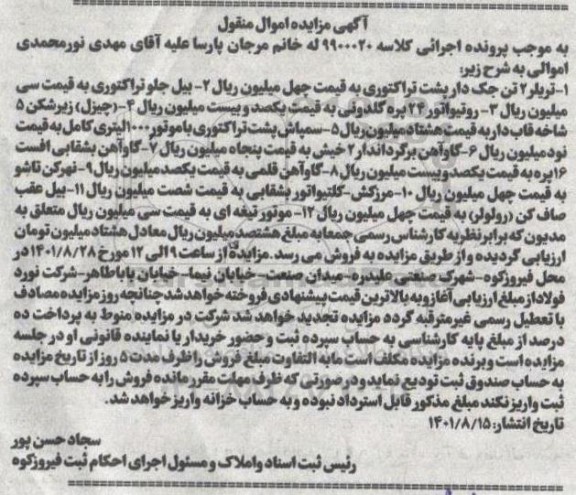 آگهی مزایده اموال منقول
به موجب پرونده اجرائی کلاسه ۹۹۰۰۰۲۰ له خانم مرجان پارسا علیه آقای مهدی نورمحمدی
اموالی به شرح زیر:
۱-تریلر ۲ تن جک دار پشت تراکتوری به قیمت چهل میلیون ریال ۲- بیل جلو تراکتوری به قیمت سی
میلیون ریال ۳- روتیواتور ۲۴ پره گلدونی به قیمت یکصد و بیست میلیون ریال ۴-(چیزل) زیرشکن ۵
شاخه قاب دار به قیمت هشتاد میلیون ریال ۵- سمپاش پشت تراکتوری با موتور ۱۰۰۰ لیتری کامل به قیمت
نود میلیون ریال ۶-گاوآهن برگرداندار ۲ خیش به قیمت پنجاه میلیون ریال ۷-گاوآهن بشقابی افست
۱۶ پره به قیمت یکصد و بیست میلیون ریال ۸-گاوآهن قلمی به قیمت یکصد میلیون ریال ۹-نهرکن تاشو
به قیمت چهل میلیون ریال ۱۰-مرزکش-کلتیواتور بشقابی به قیمت شصت میلیون ریال ۱۱-بیل عقب
صاف کن (رولولر) به قیمت چهل میلیون ریال ۱۲- موتور تیغه ای به قیمت سی میلیون ریال متعلق به
مدیون که برابر نظریه کارشناس رسمی جمعا به مبلغ هشتصد میلیون ریال معادل هشتاد میلیون تومان
ارزیابی گردیده و از طریق مزایده به فروش می رسد. مزایده از ساعت ۹ الی ۱۲ مورخ ۱۴۰۱/۸/۲۸ در
محل فیروزکوه-شهرک صنعتی علیدره-میدان صنعت-خیابان نیما-خیابان باباطاهر-شرکت نورد
فولاد از مبلغ ارزیابی آغاز و به بالاترین قیمت پیشنهادی فروخته خواهد شد چنانچه روز مزایده مصادف
با تعطیل رسمی غیرمترقبه گردد مزایده تجدید خواهد شد شرکت در مزایده منوط به پرداخت ده
درصد از مبلغ پایه کارشناسی به حساب سپرده ثبت و حضور خریدار یا نماینده قانونی او در جلسه
مزایده است و برنده مزایده مکلف است مابه التفاوت مبلغ فروش را ظرف مدت ۵ روز از تاریخ مزایده
به حساب صندوق ثبت تودیع نماید و در صورتی که ظرف مهلت مقرر مانده فروش را به حساب سپرده
ثبت واریز نکند مبلغ مذکور قابل استرداد نبوده و به حساب خزانه واریز خواهد شد.
تاریخ انتشار: ۱۴۰۱/۸/۱۵
سجاد حسن پور
رئیس ثبت اسناد و املاک و مسئول اجرای احکام ثبت فیروزکوه